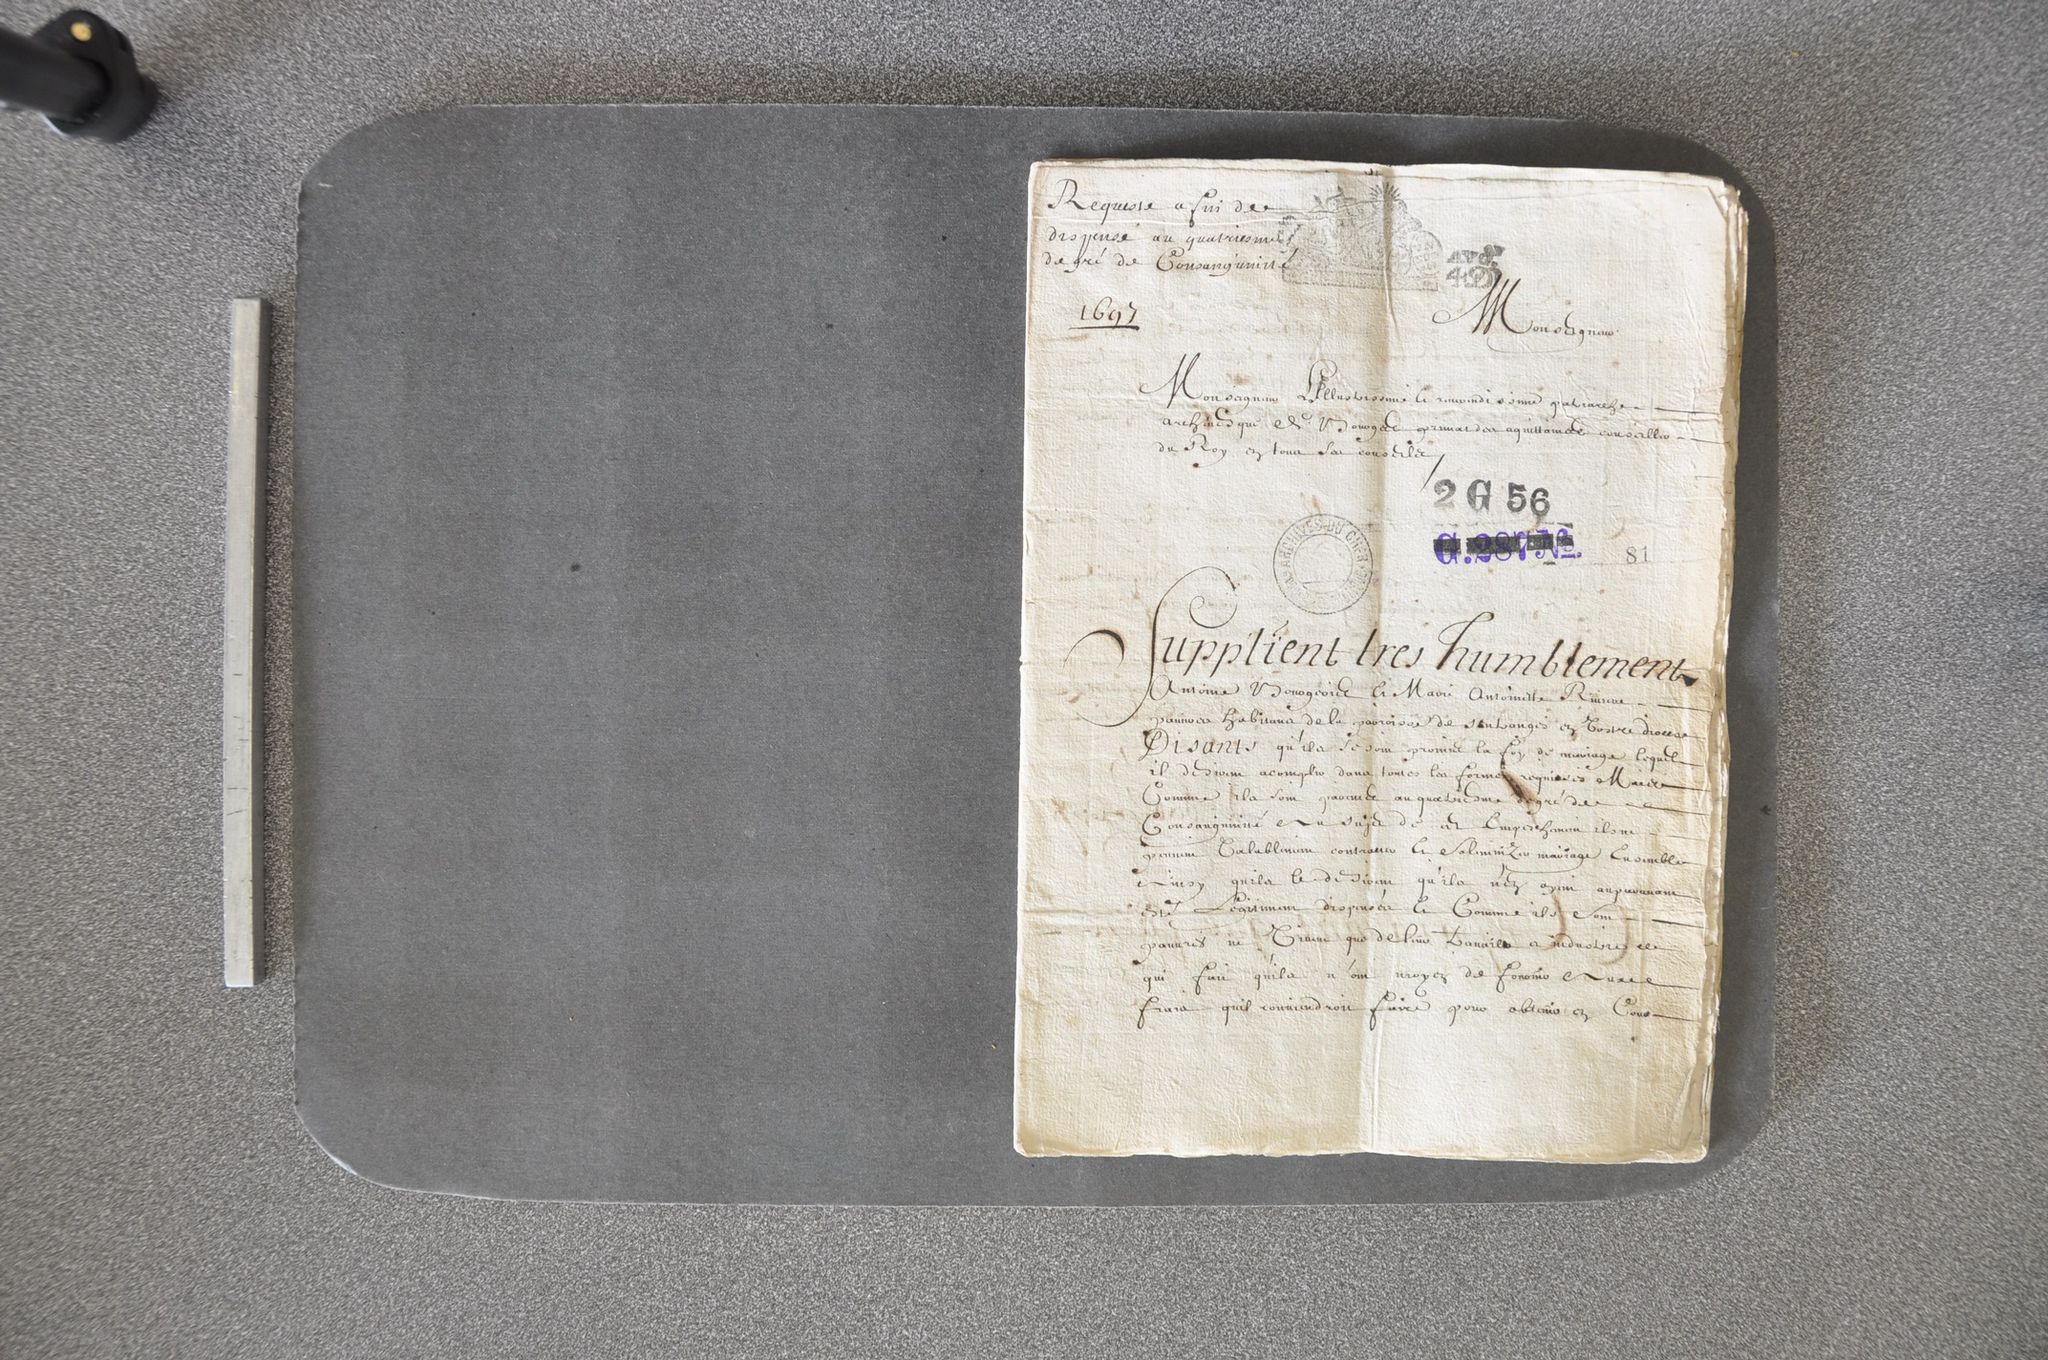 Requeste a fin de
dispense au quatriesme
degré de Consanguinité
1697
Monseigneur
Monseigneur L'Illustrissime & reverendissime patriarche
archevesque de Bourges primat des aquittaines conseiller
du Roy en tous ses conseils
2 G 56
ARCHIVES DU CHER
G. 287 No.
81
Supplient tres humblement
Antoine Bourgeois & Marie Antoinette
pauvres habitans de la paroisse de en vostre diocese
Disants qu'ils se sont promis la foy de mariage lequel
il desirent acomplir dans toutes les formes requises Mais
Comme ils sont parents au quatriesme degré de
Consanguinité au sujet de cet Empeschement ils ne
peuvent valablement contracter & solemnizer mariage Ensemble
Ainsy qu'ils le desirent qu'ils n'en ayent auparavant
esté Legitimement dispensés & Comme ils sont
pauvres ne vivent que de leur travail & industrie ce
qui fait qu'ils n'ont moyen de fournir aux
frais quil conviendroit faire pour obtenir en Cour